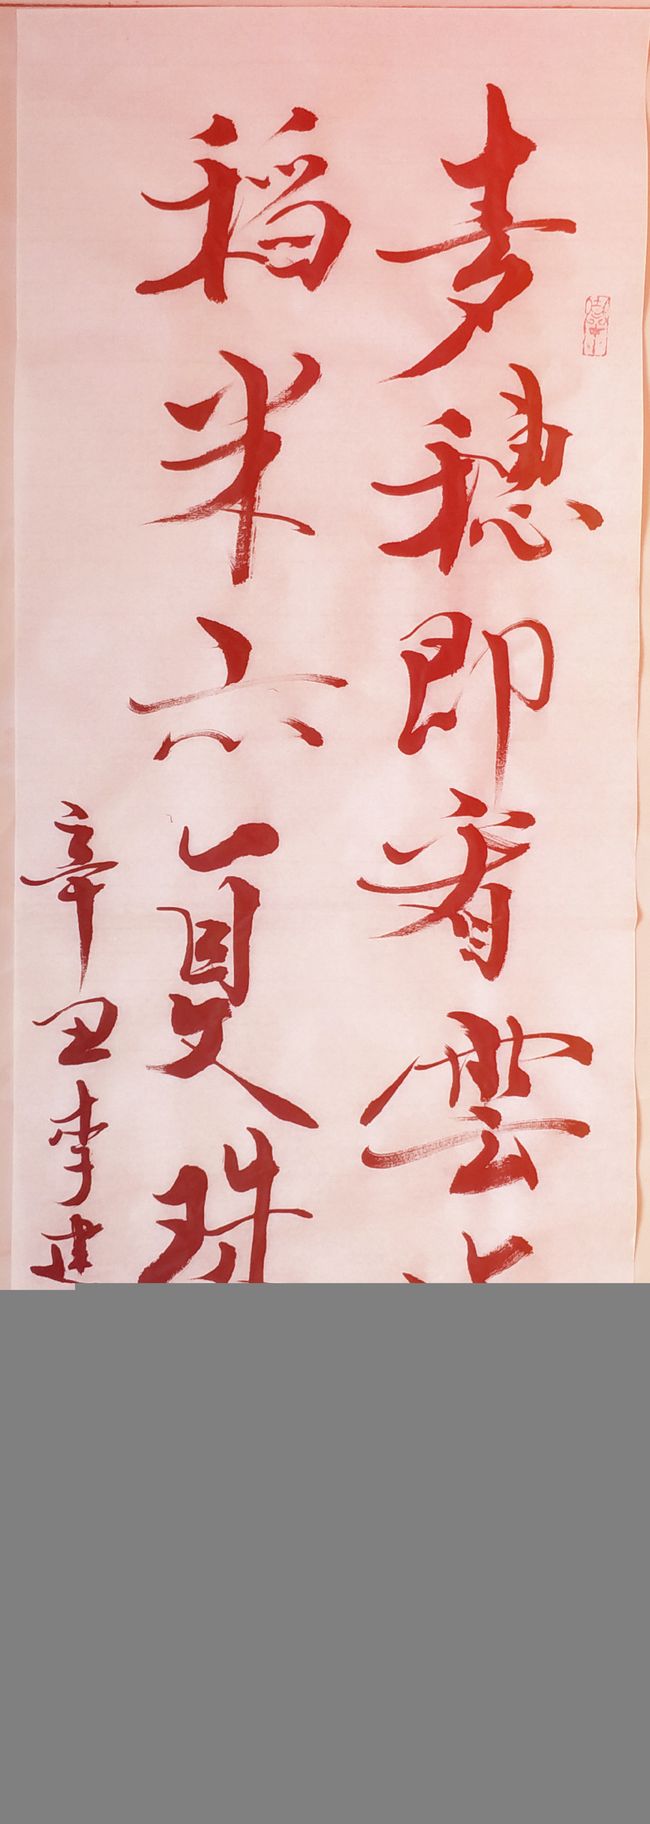 麦穗即看雲
稻米六夏珠
辛丑李建